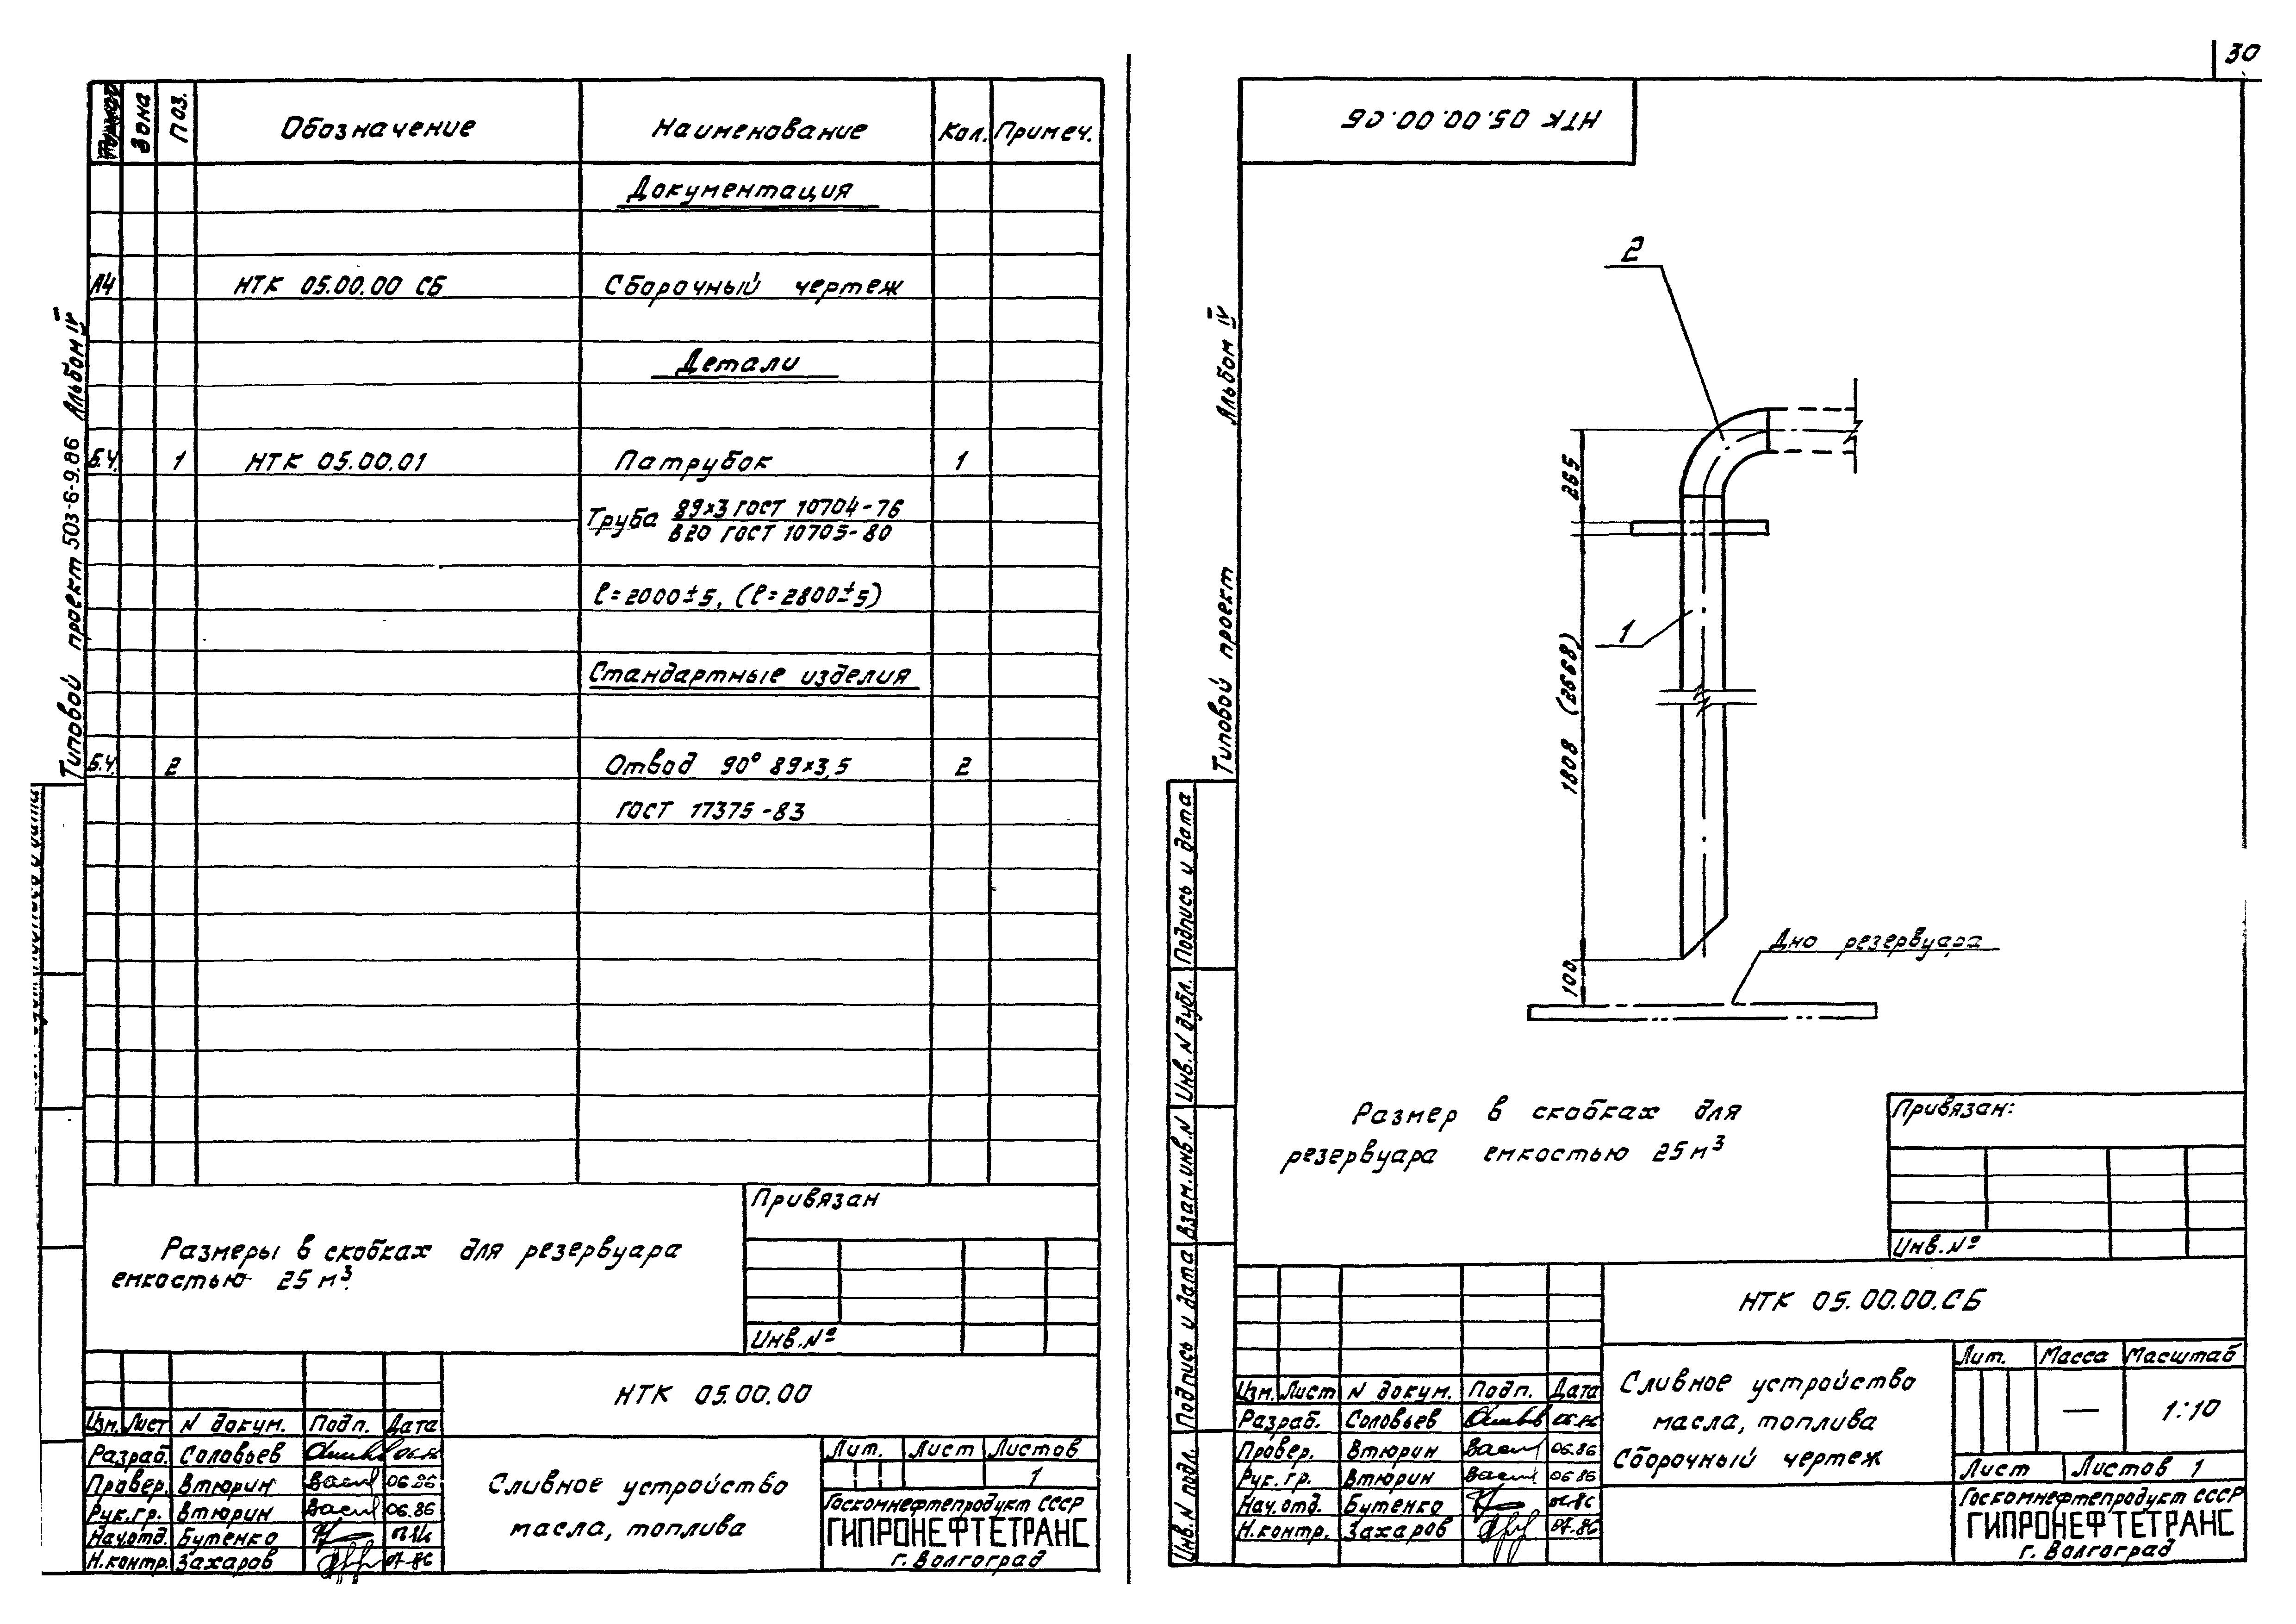 30
Зона
Поз.
Обозначение
Наименование
Кол.
Примеч.
Документация
А4
НТК 05.00.00 СБ
Сборочный чертеж
Детали
Б.Ч.
1
НТК 05.00.01
Патрубок
1
Труба 89×3 ГОСТ 10704-76
В20 ГОСТ 10705-80
ℓ=2000±5, (ℓ=2800±5)
Стандартные изделия
Б.Ч.
2
Отвод 90° 89×3,5
2
ГОСТ 17375-83
Типовой проект 503-6-9.86 Альбом IV
Размеры в скобках для резервуара
емкостью 25 м³.
Привязан
Инв.№
НТК 05.00.00
Изм. Лист N докум. Подп. Дата
Разраб. Соловьев 06.86
Провер. Втюрин 06.86
Рук.гр. Втюрин 06.86
Нач.отд. Бутенко
Н.контр. Захаров 07.86
Сливное устройство
масла, топлива
Лит. Лист Листов
1
Госкомнефтепродукт СССР
ГИПРОНЕФТЕТРАНС
г. Волгоград
НТК 05.00.00.СБ
Типовой проект Альбом IV
2
265
1
1808 (2668)
100
Дно резервуара
Размер в скобках для
резервуара емкостью 25 м³
Привязан:
Инв.№
Подпись и дата
Инв. N дубл.
Взам.инв.N
Подпись и дата
Инв. N подл.
НТК 05.00.00.СБ
Изм. Лист N докум. Подп. Дата
Разраб. Соловьев 06.86
Провер. Втюрин 06.86
Рук. гр. Втюрин 06.86
Нач.отд. Бутенко 06.86
Н.контр. Захаров 07.86
Сливное устройство
масла, топлива
Сборочный чертеж
Лит. Масса Масштаб
— 1:10
Лист Листов 1
Госкомнефтепродукт СССР
ГИПРОНЕФТЕТРАНС
г. Волгоград